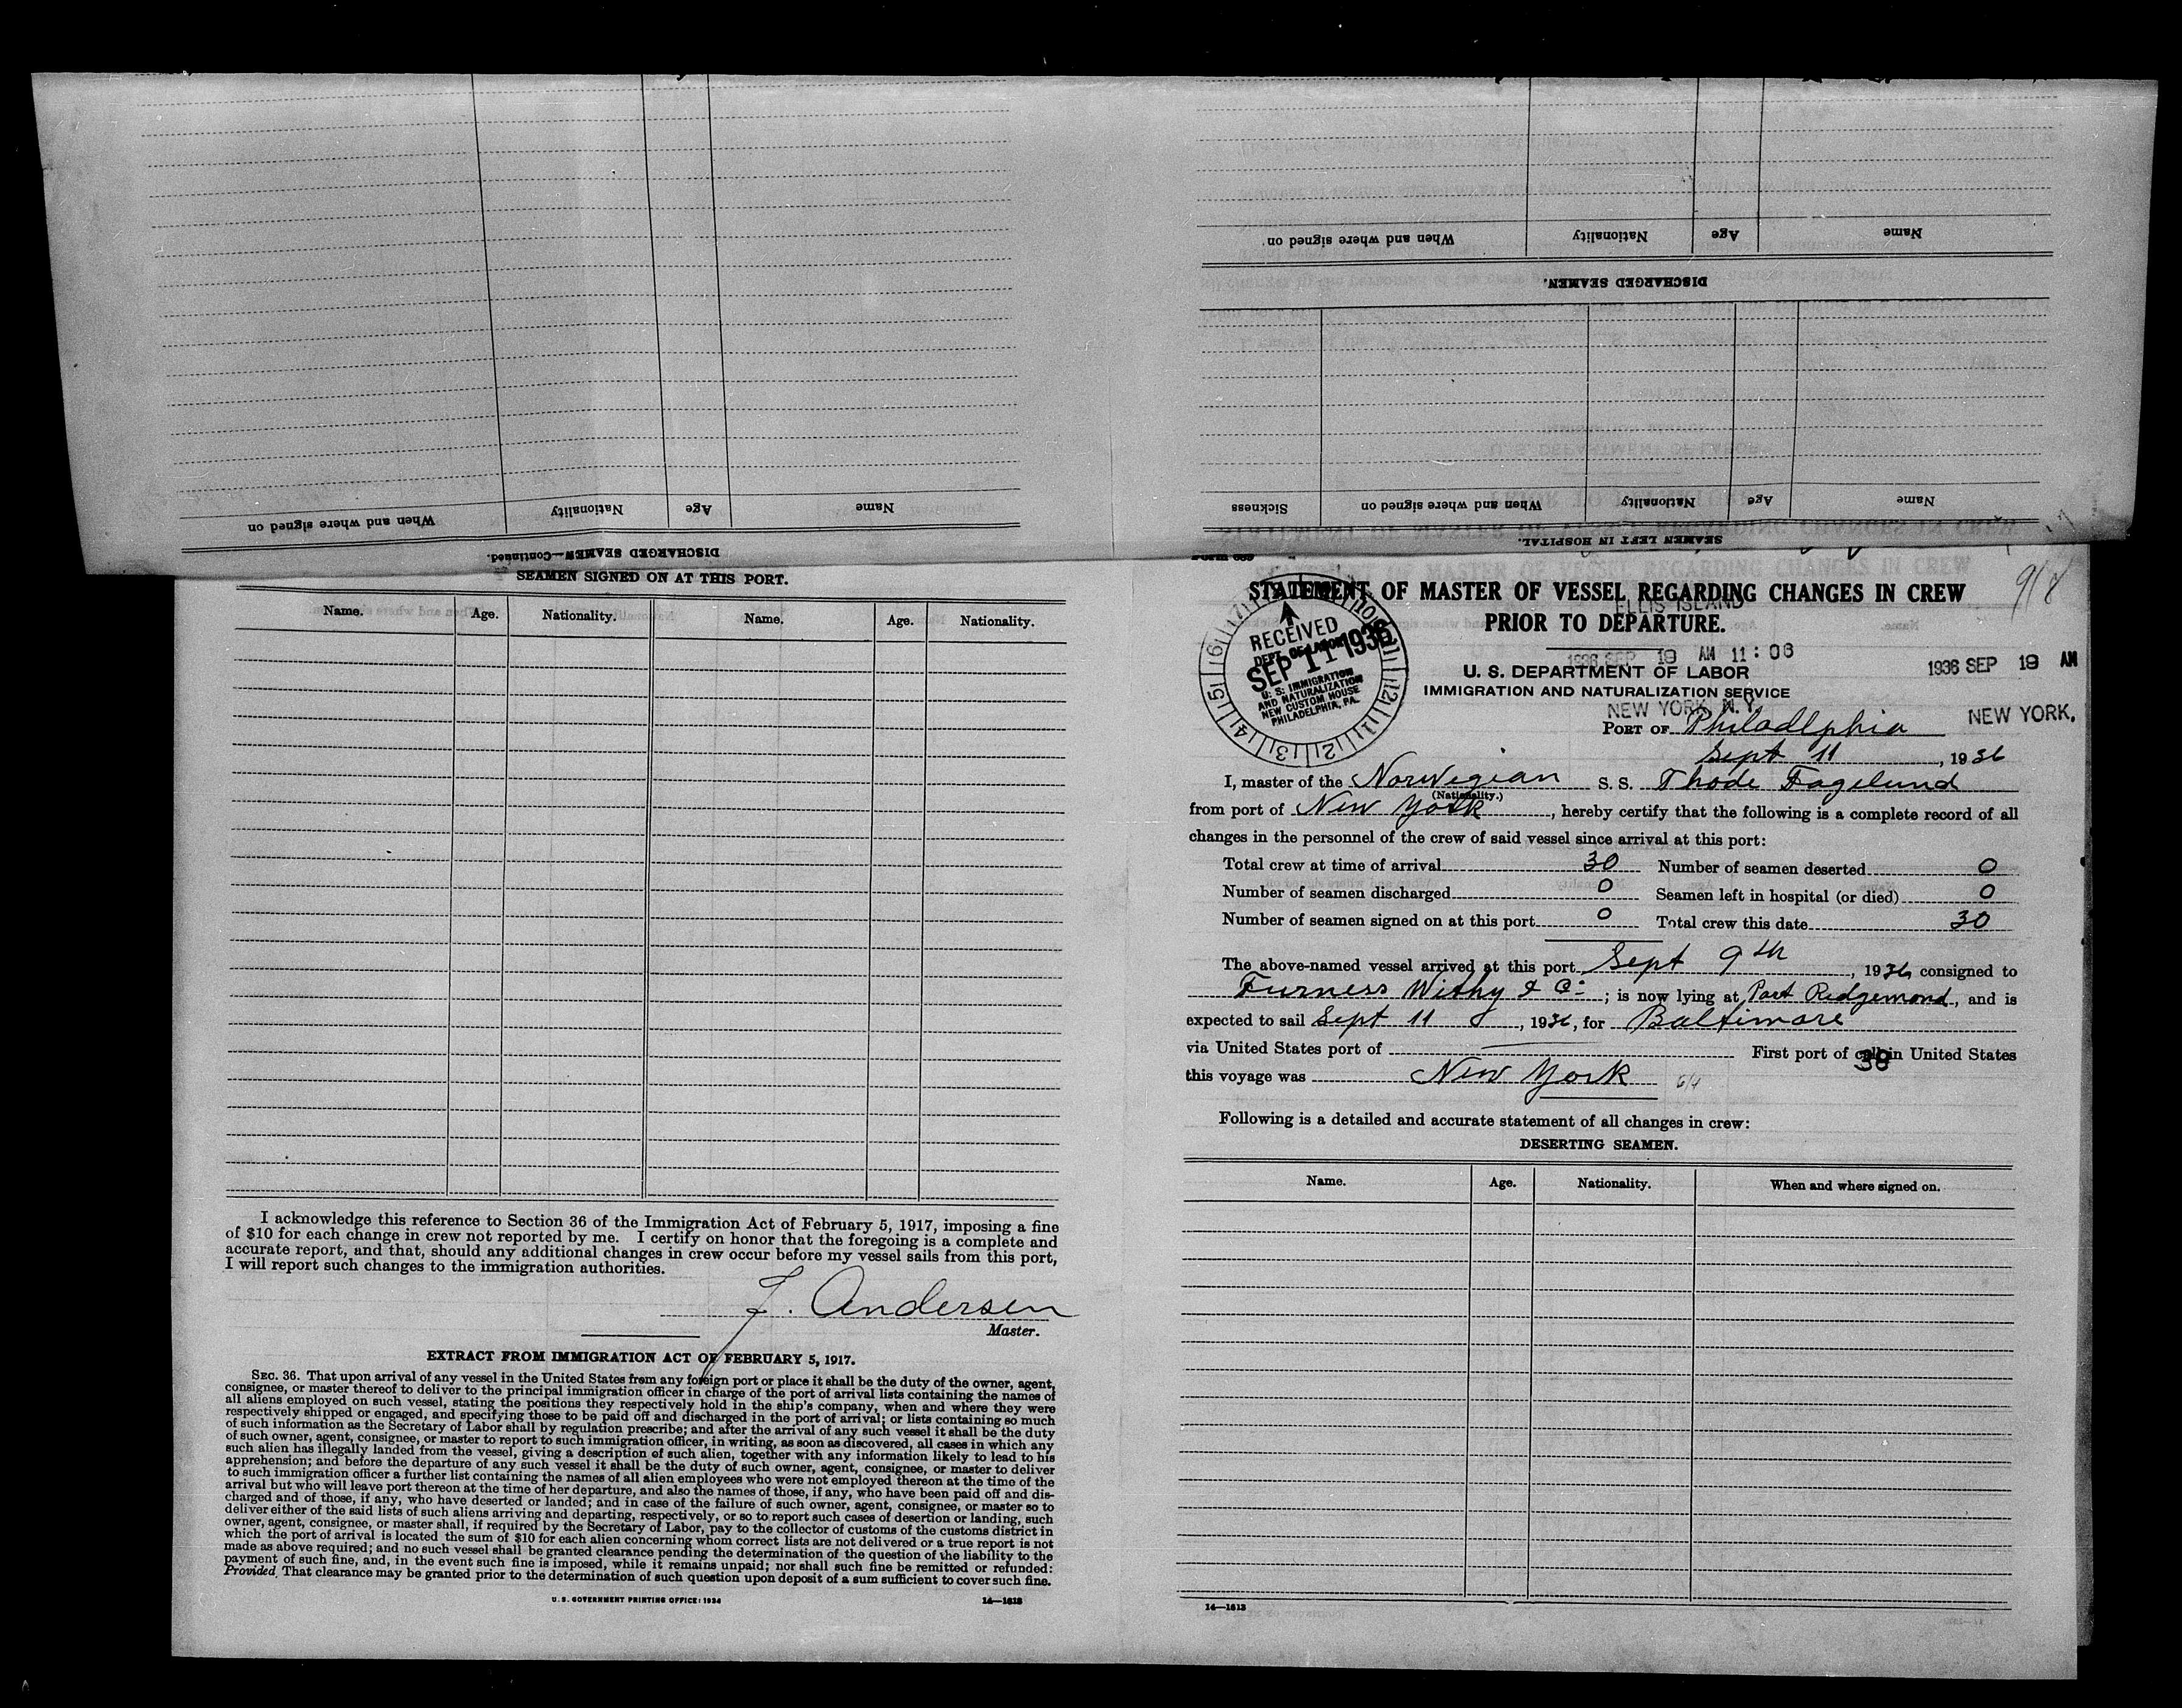 When and where signed on
Nationality
Age
Name
DISCHARGED SEAMEN—Continued.
When and where signed on.
Nationality
Age
Name
DISCHARGED SEAMEN.
Sickness
When and where signed on
Nationality
Age
Name
SEAMEN LEFT IN HOSPITAL.
SEAMEN SIGNED ON AT THIS PORT.
Name. Age. Nationality. Name. Age. Nationality.
I acknowledge this reference to Section 36 of the Immigration Act of February 5, 1917, imposing a fine
of $10 for each change in crew not reported by me. I certify on honor that the foregoing is a complete and
accurate report, and that, should any additional changes in crew occur before my vessel sails from this port,
I will report such changes to the immigration authorities.
J. Andersen
Master.
EXTRACT FROM IMMIGRATION ACT OF FEBRUARY 5, 1917.
SEC. 36. That upon arrival of any vessel in the United States from any foreign port or place it shall be the duty of the owner, agent,
consignee, or master thereof to deliver to the principal immigration officer in charge of the port of arrival lists containing the names of
all aliens employed on such vessel, stating the positions they respectively hold in the ship's company, when and where they were
respectively shipped or engaged, and specifying those to be paid off and discharged in the port of arrival; or lists containing so much
of such information as the Secretary of Labor shall by regulation prescribe; and after the arrival of any such vessel it shall be the duty
of such owner, agent, consignee, or master to report to such immigration officer, in writing, as soon as discovered, all cases in which any
such alien has illegally landed from the vessel, giving a description of such alien, together with any information likely to lead to his
apprehension; and before the departure of any such vessel it shall be the duty of such owner, agent, consignee, or master to deliver
to such immigration officer a further list containing the names of all alien employees who were not employed thereon at the time of the
arrival but who will leave port thereon at the time of her departure, and also the names of those, if any, who have been paid off and dis-
charged and of those, if any, who have deserted or landed; and in case of the failure of such owner, agent, consignee, or master so to
deliver either of the said lists of such aliens arriving and departing, respectively, or so to report such cases of desertion or landing, such
owner, agent, consignee, or master shall, if required by the Secretary of Labor, pay to the collector of customs of the customs district in
which the port of arrival is located the sum of $10 for each alien concerning whom correct lists are not delivered or a true report is not
made as above required; and no such vessel shall be granted clearance pending the determination of the question of the liability to the
payment of such fine, and, in the event such fine is imposed, while it remains unpaid; nor shall such fine be remitted or refunded:
Provided, That clearance may be granted prior to the determination of such question upon deposit of a sum sufficient to cover such fine.
U. S. GOVERNMENT PRINTING OFFICE: 1934 14—1613
STATEMENT OF MASTER OF VESSEL REGARDING CHANGES IN CREW
PRIOR TO DEPARTURE.
ELLIS ISLAND
1936 SEP 19 AM 11:06
NEW YORK, N.Y.
1936 SEP 19 AM
NEW YORK,
RECEIVED
DEPT. OF LABOR
SEP 11 1936
U. S. IMMIGRATION
AND NATURALIZATION
NEW CUSTOM HOUSE
PHILADELPHIA, PA.
U. S. DEPARTMENT OF LABOR
IMMIGRATION AND NATURALIZATION SERVICE
PORT OF Philadlphia
Sept 11, 1936
I, master of the Norwegian S. S. Thode Fagelund
(Nationality.)
from port of New York, hereby certify that the following is a complete record of all
changes in the personnel of the crew of said vessel since arrival at this port:
Total crew at time of arrival 30 Number of seamen deserted 0
Number of seamen discharged 0 Seamen left in hospital (or died) 0
Number of seamen signed on at this port 0 Total crew this date 30
The above-named vessel arrived at this port Sept 9th, 1936, consigned to
Furness Withy & Co; is now lying at Port Ridgemond, and is
expected to sail Sept 11, 1936, for Baltimore
via United States port of First port of call in United States
38
this voyage was New York
Following is a detailed and accurate statement of all changes in crew:
DESERTING SEAMEN.
Name. Age. Nationality. When and where signed on.
14—1613